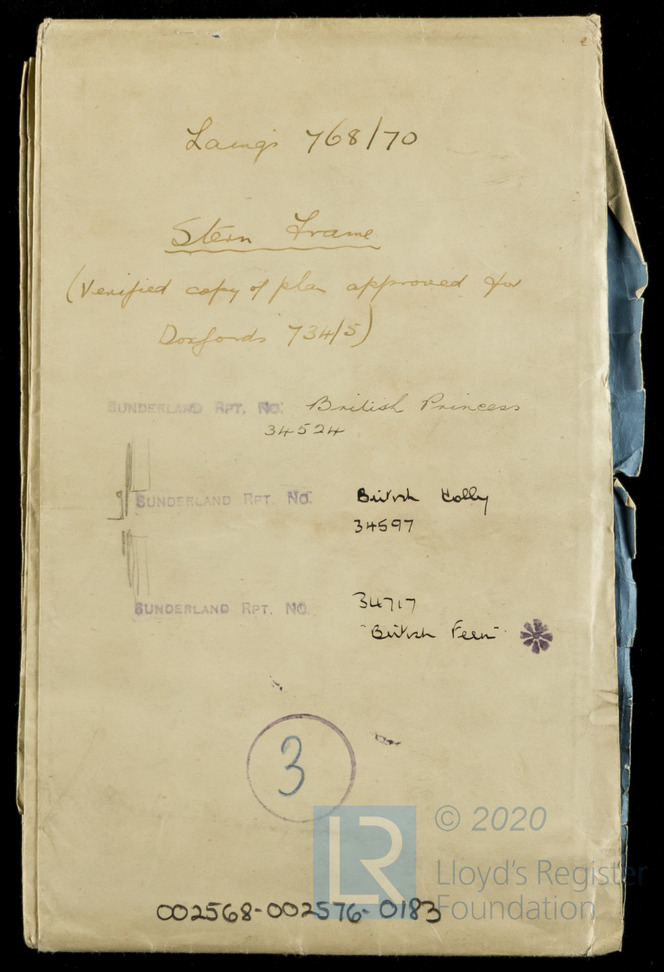 Laing's 768/70
Stern Frame
(Verified copy of plan approved for
Doxfords 734/5)
SUNDERLAND RPT. NO. British Princess
34524
SUNDERLAND RPT. NO. British Holly
34597
SUNDERLAND RPT. NO. 34717
"British Fern"
3
LR
© 2020
Lloyd's Register
Foundation
002568-002576-0183